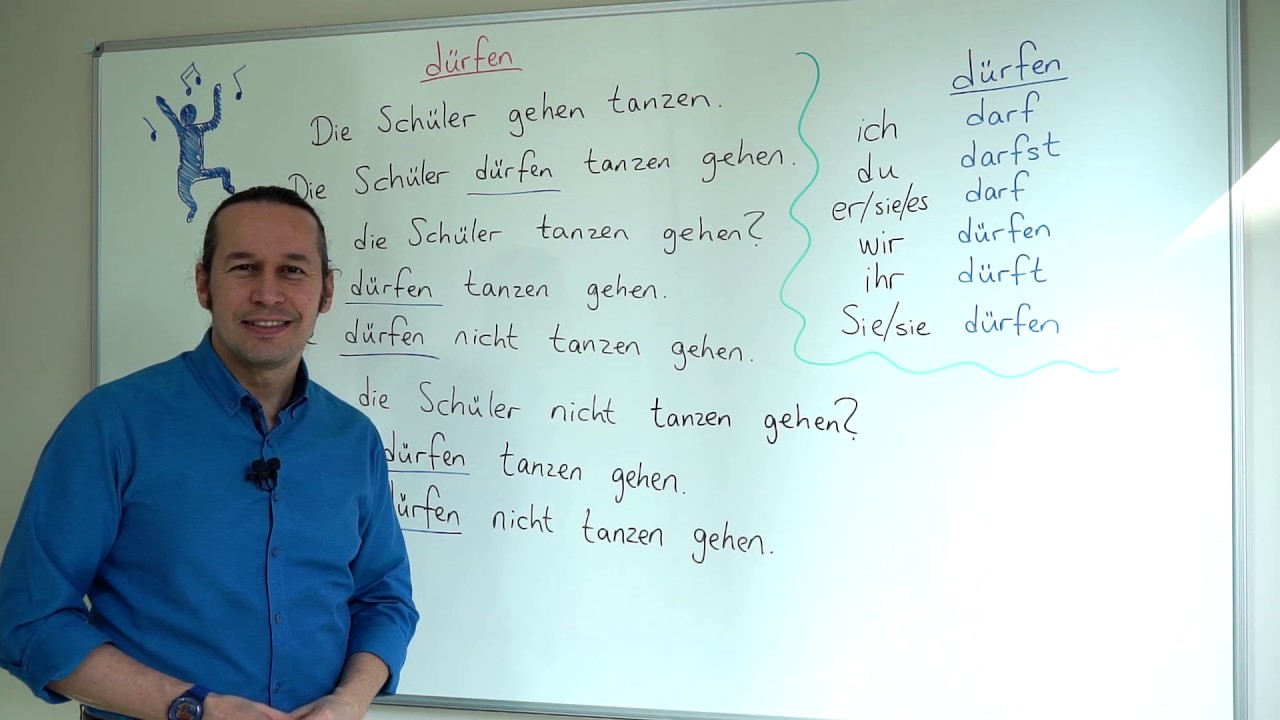 dürfen
Die Schüler gehen tanzen.
Die Schüler dürfen tanzen gehen.
die Schüler tanzen gehen?
dürfen tanzen gehen.
dürfen nicht tanzen gehen.
die Schüler nicht tanzen gehen?
dürfen tanzen gehen.
dürfen nicht tanzen gehen.
dürfen
ich darf
du darfst
er/sie/es darf
wir dürfen
ihr dürft
Sie/sie dürfen